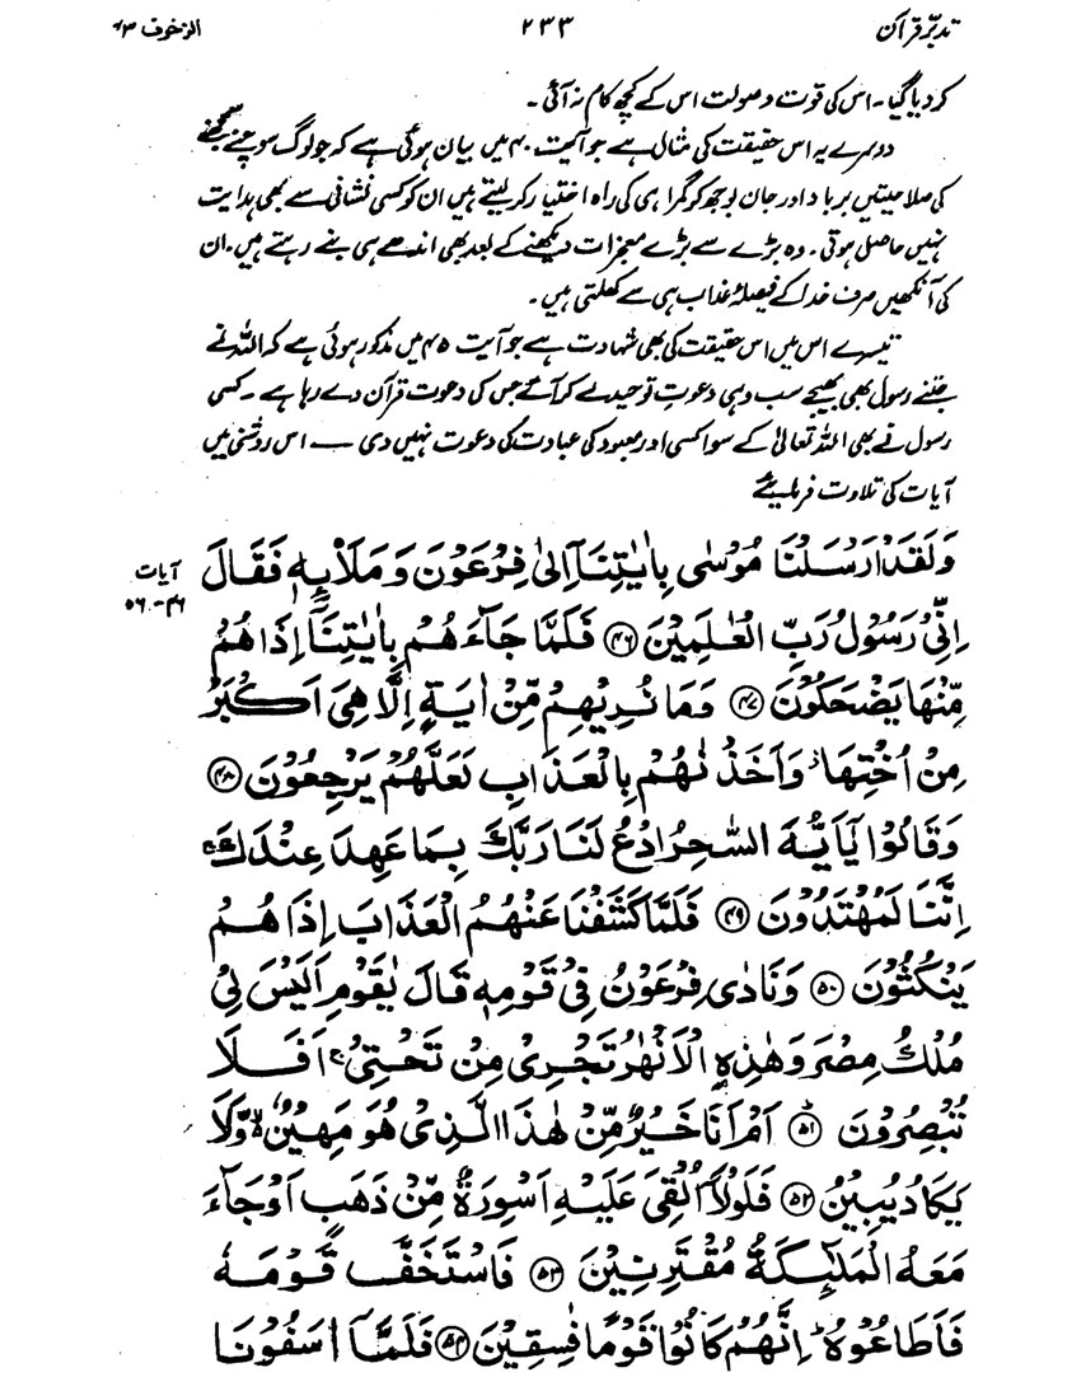 تدبّرِ قرآن ۲۳۳ الزخرف ۴۳
کر دیا گیا۔ اس کی قوت و صولت اس کے کچھ کام نہ آئی۔
دوسرے یہ اس حقیقت کی مثال ہے جو آیت ۴۰ میں بیان ہوئی ہے کہ جو لوگ سوچنے سمجھنے
کی صلاحیتیں برباد اور جان بوجھ کر گمراہی کی راہ اختیار کر لیتے ہیں ان کو کسی نشانی سے بھی ہدایت
نہیں حاصل ہوتی۔ وہ بڑے سے بڑے معجزات دیکھنے کے بعد بھی اندھے ہی بنے رہتے ہیں۔ ان
کی آنکھیں صرف خدا کے فیصلۂ عذاب ہی سے کھلتی ہیں۔
تیسرے اس میں اس حقیقت کی بھی شہادت ہے جو آیت ۴۵ میں مذکور ہوئی ہے کہ اللہ نے
جتنے رسول بھی بھیجے سب وہی دعوتِ توحید لے کر آئے جس کی دعوت قرآن دے رہا ہے۔ کسی
رسول نے بھی اللہ تعالیٰ کے سوا کسی اور معبود کی عبادت کی دعوت نہیں دی — اس روشنی میں
آیات کی تلاوت فرمایئے
وَلَقَدْ اَرْسَلْنَا مُوْسٰى بِاٰيٰتِنَآ اِلٰى فِرْعَوْنَ وَمَلَا۟ئِهٖ فَقَالَ
آیات
۴۶-۵۶
اِنِّىْ رَسُوْلُ رَبِّ الْعٰلَمِيْنَ ﴿۴۶﴾ فَلَمَّا جَآءَهُمْ بِاٰيٰتِنَآ اِذَا هُمْ
مِّنْهَا يَضْحَكُوْنَ ﴿۴۷﴾ وَمَا نُرِيْهِمْ مِّنْ اٰيَةٍ اِلَّا هِىَ اَكْبَرُ
مِنْ اُخْتِهَا ؗ وَاَخَذْنٰهُمْ بِالْعَذَابِ لَعَلَّهُمْ يَرْجِعُوْنَ ﴿۴۸﴾
وَقَالُوْا يٰٓاَيُّهَ السّٰحِرُ ادْعُ لَنَا رَبَّكَ بِمَا عَهِدَ عِنْدَكَ ۚ
اِنَّنَا لَمُهْتَدُوْنَ ﴿۴۹﴾ فَلَمَّا كَشَفْنَا عَنْهُمُ الْعَذَابَ اِذَا هُمْ
يَنْكُثُوْنَ ﴿۵۰﴾ وَنَادٰى فِرْعَوْنُ فِىْ قَوْمِهٖ قَالَ يٰقَوْمِ اَلَيْسَ لِىْ
مُلْكُ مِصْرَ وَهٰذِهِ الْاَنْهٰرُ تَجْرِىْ مِنْ تَحْتِىْ ۚ اَفَلَا
تُبْصِرُوْنَ ﴿۵۱﴾ اَمْ اَنَا خَيْرٌ مِّنْ هٰذَا الَّذِىْ هُوَ مَهِيْنٌ ۙ وَّلَا
يَكَادُ يُبِيْنُ ﴿۵۲﴾ فَلَوْلَآ اُلْقِىَ عَلَيْهِ اَسْوِرَةٌ مِّنْ ذَهَبٍ اَوْ جَآءَ
مَعَهُ الْمَلٰٓئِكَةُ مُقْتَرِنِيْنَ ﴿۵۳﴾ فَاسْتَخَفَّ قَوْمَهٗ
فَاَطَاعُوْهُ ؕ اِنَّهُمْ كَانُوْا قَوْمًا فٰسِقِيْنَ ﴿۵۴﴾ فَلَمَّآ اٰسَفُوْنَا